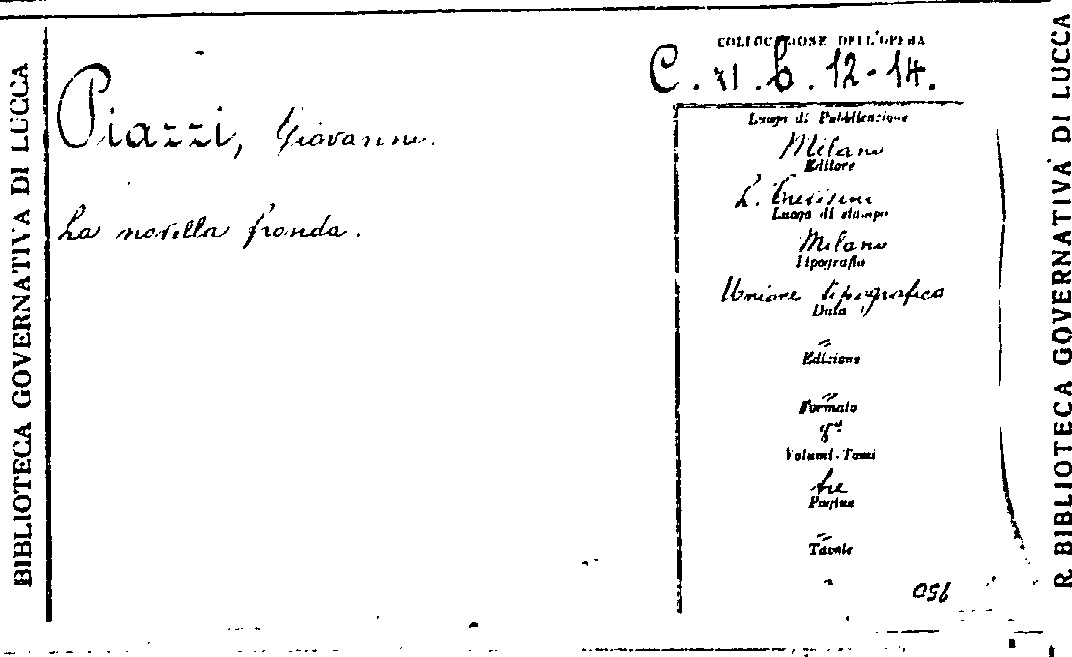 BIBLIOTECA GOVERNATIVA DI LUCCA
COLLOCAZIONE DELL'OPERA
C. XI. b. 12-14.
Piazzi, Giovanni.
La novella fronda.
Luogo di Pubblicazione
Milano
Editore
L. Trevisini
Luogo di stampo
Milano
Tipografia
Unione tipografica
Data
"
Edizione
"
Formato
8º
Volumi-Tomi
tre
Pagine
"
Tavole
R. BIBLIOTECA GOVERNATIVA DI LUCCA